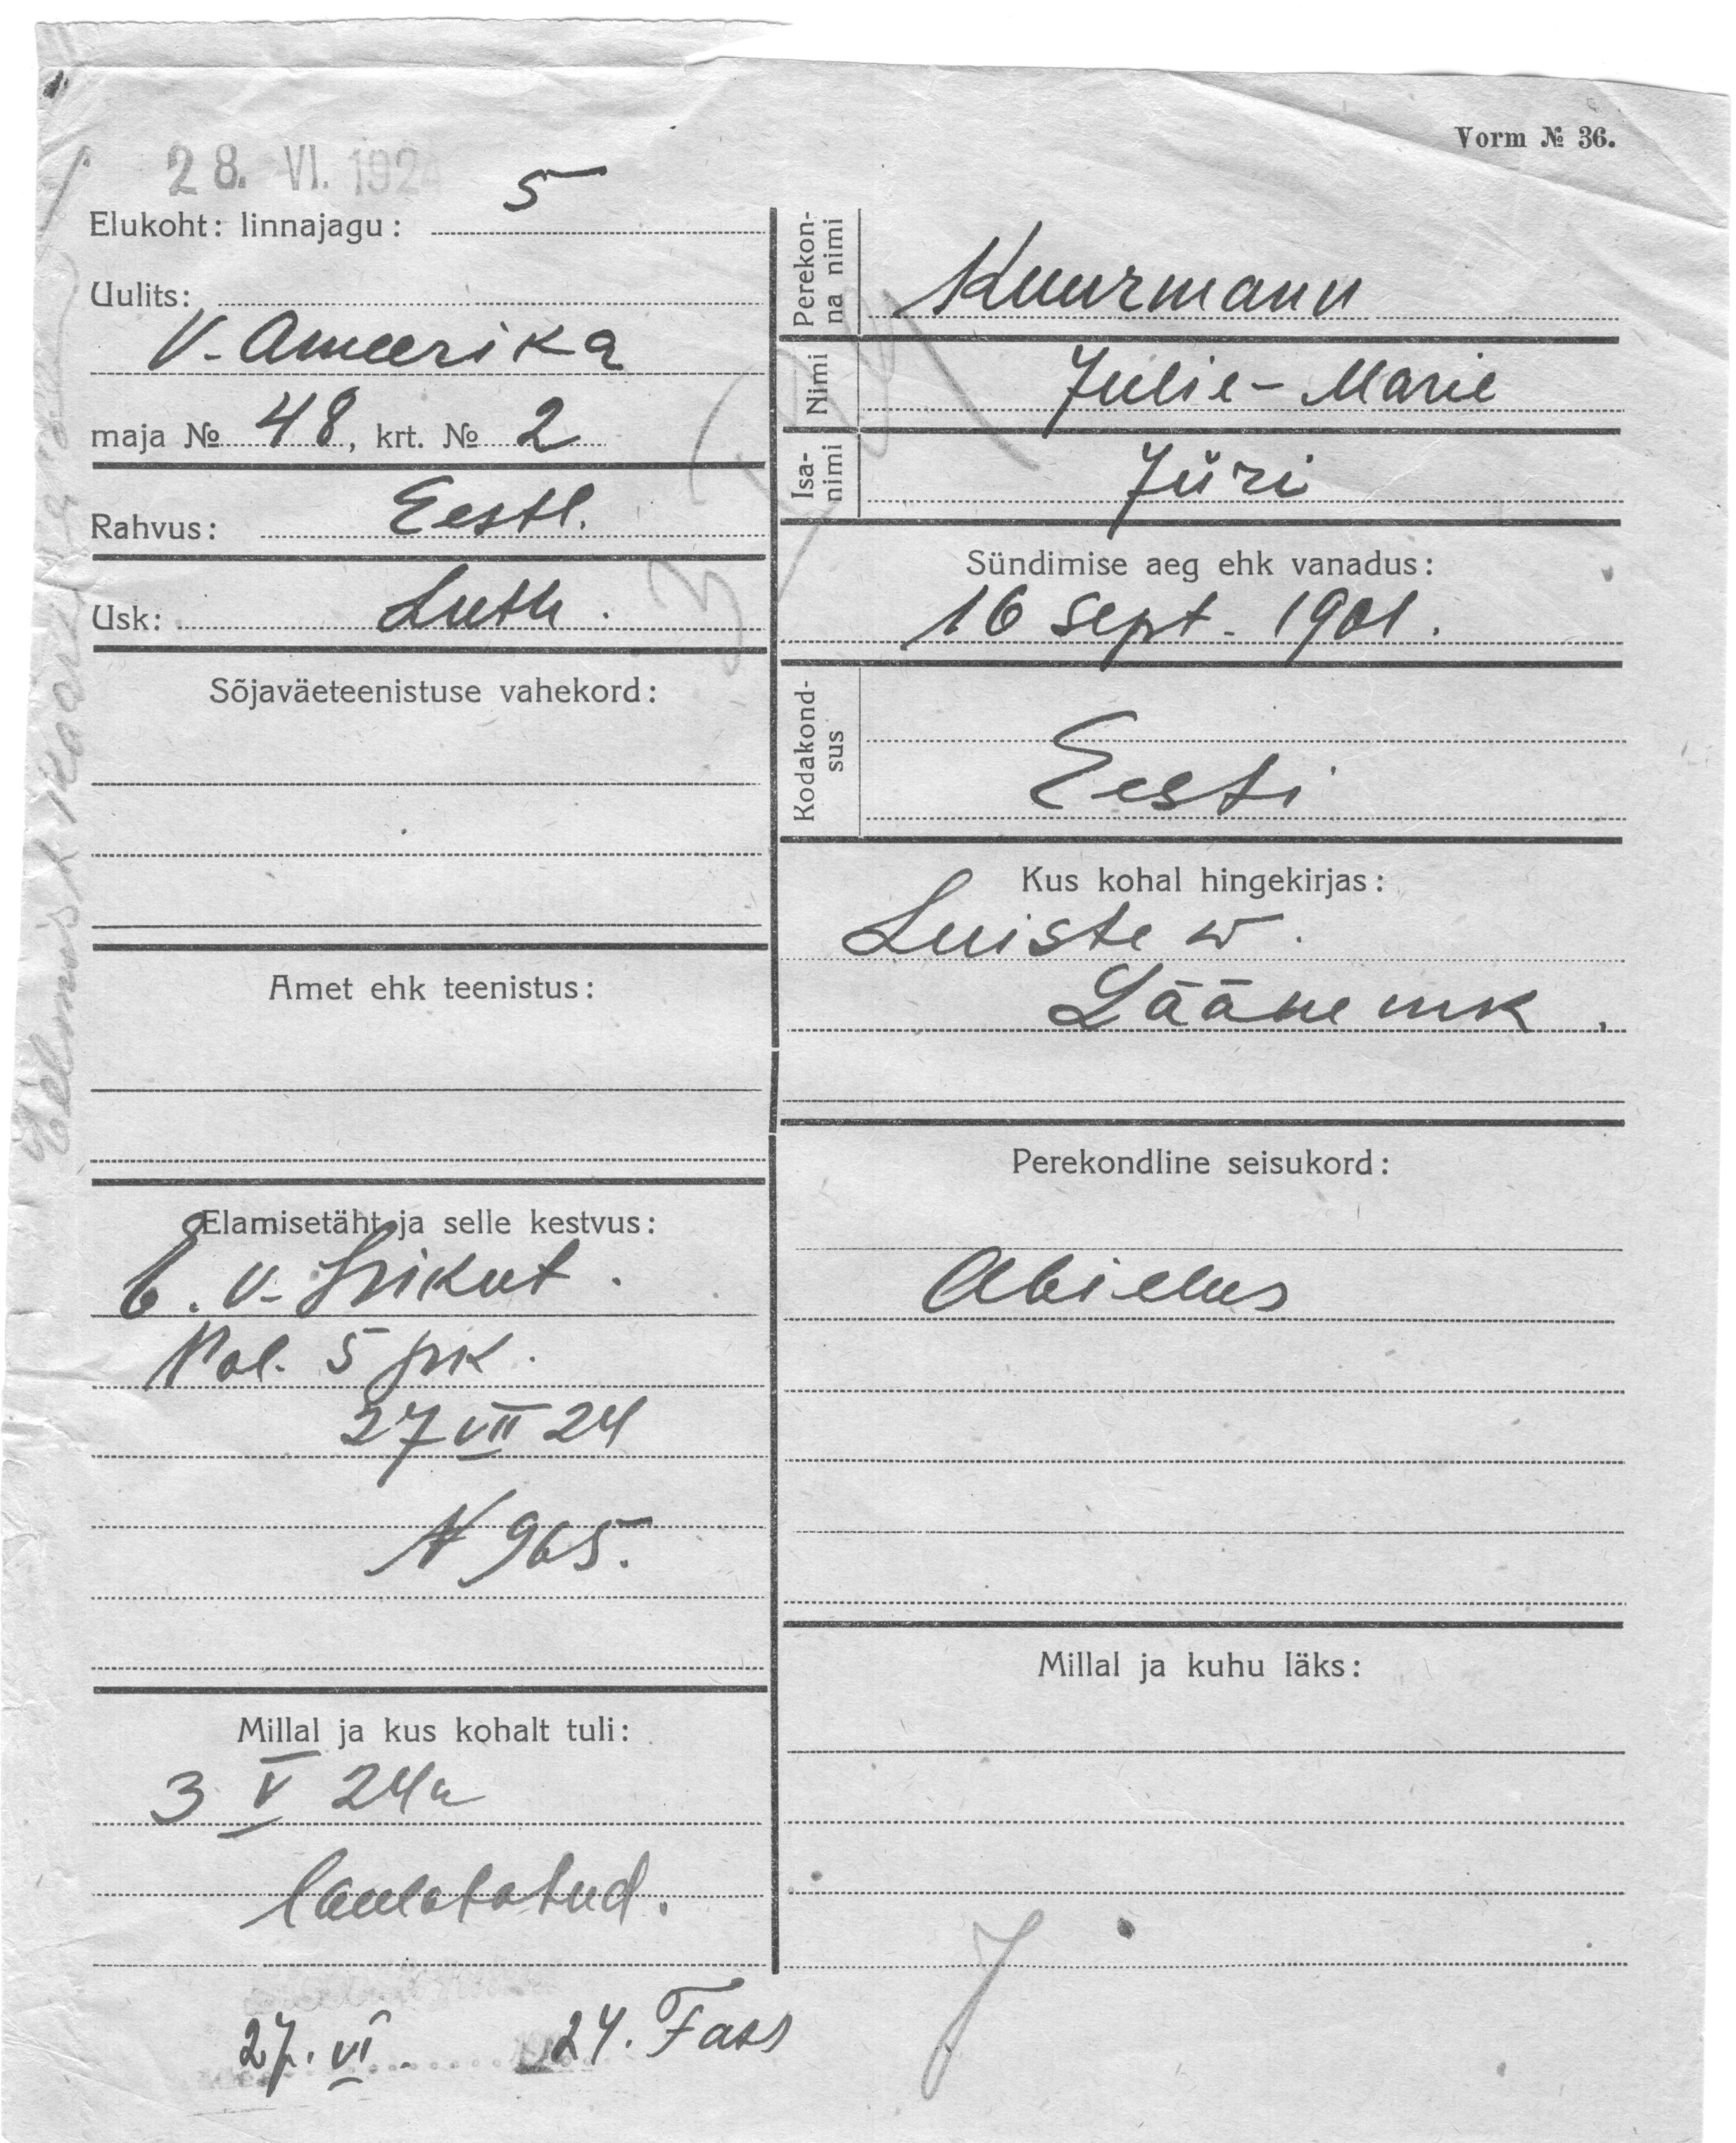 Vorm № 36.
28. VI. 192
Elukoht: linnajagu: 5
Uulits:
V-Ameerika
maja № 48, krt. № 2
Rahvus: Eestl.
Usk: Luth.
Sõjaväeteenistuse vahekord:
Amet ehk teenistus:
Elamisetäht ja selle kestvus:
E. V-
Pol. 5 jsk.
27 VII 24
N 965.
Millal ja kus kohalt tuli:
3 V 24a
laulatatud.
27. VI. 24. Fass
Perekon-
na nimi
Kuurmann
Nimi
Julie-Marie
Isa-
nimi
Jüri
Sündimise aeg ehk vanadus:
16 sept. 1901.
Kodakond-
sus
Eesti
Kus kohal hingekirjas:
Luiste w.
Lääne mk.
Perekondline seisukord:
Abielus
Millal ja kuhu läks: